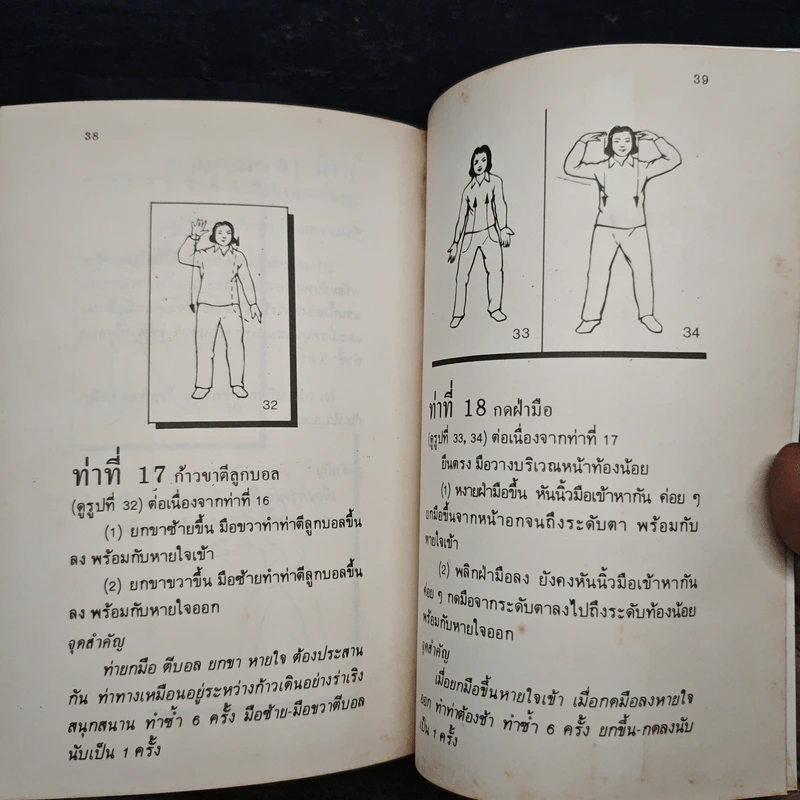 38
32
ท่าที่ 17 ก้าวขาตีลูกบอล
(ดูรูปที่ 32) ต่อเนื่องจากท่าที่ 16
(1) ยกขาซ้ายขึ้น มือขวาทำท่าตีลูกบอลขึ้น
ลง พร้อมกับหายใจเข้า
(2) ยกขาขวาขึ้น มือซ้ายทำท่าตีลูกบอลขึ้น
ลง พร้อมกับหายใจออก
จุดสำคัญ
ท่ายกมือ ตีบอล ยกขา หายใจ ต้องประสาน
กัน ท่าทางเหมือนอยู่ระหว่างก้าวเดินอย่างร่าเริง
สนุกสนาน ทำซ้ำ 6 ครั้ง มือซ้าย-มือขวาตีบอล
นับเป็น 1 ครั้ง
39
33
34
ท่าที่ 18 กดฝ่ามือ
(ดูรูปที่ 33, 34) ต่อเนื่องจากท่าที่ 17
ยืนตรง มือวางบริเวณหน้าท้องน้อย
(1) หงายฝ่ามือขึ้น หันนิ้วมือเข้าหากัน ค่อย ๆ
ยกมือขึ้นจากหน้าอกจนถึงระดับตา พร้อมกับ
หายใจเข้า
(2) พลิกฝ่ามือลง ยังคงหันนิ้วมือเข้าหากัน
ค่อย ๆ กดมือจากระดับตาลงไปถึงระดับท้องน้อย
พร้อมกับหายใจออก
จุดสำคัญ
เมื่อยกมือขึ้นหายใจเข้า เมื่อกดมือลงหายใจ
ออก ทำท่าต้องช้า ทำซ้ำ 6 ครั้ง ยกขึ้น-กดลงนับ
เป็น 1 ครั้ง